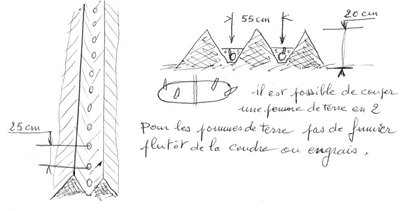 55 cm
20 cm
25 cm
- il est possible de couper
une pomme de terre en 2
Pour les pommes de terre pas de fumier
plutôt de la cendre ou engrais.